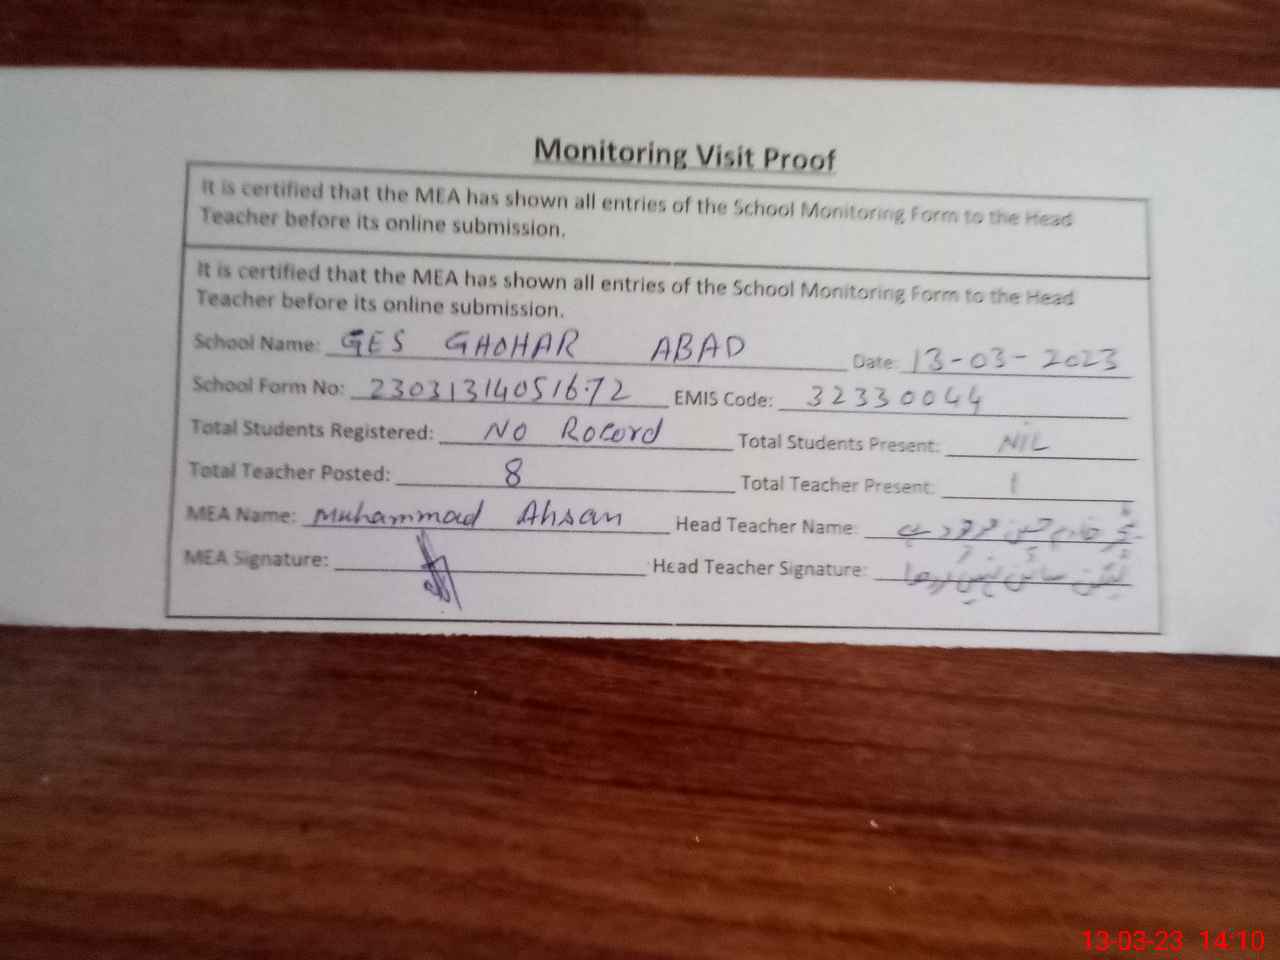 Monitoring Visit Proof
It is certified that the MEA has shown all entries of the School Monitoring Form to the Head
Teacher before its online submission.
It is certified that the MEA has shown all entries of the School Monitoring Form to the Head
Teacher before its online submission.
School Name: GES GHOHAR ABAD Date: 13-03-2023
School Form No: 23031314051672 EMIS Code: 32330044
Total Students Registered: NO Rocord Total Students Present: NIL
Total Teacher Posted: 8 Total Teacher Present: 1
MEA Name: Muhammad Ahsan Head Teacher Name:
MEA Signature: Head Teacher Signature:
13-03-23 14:10